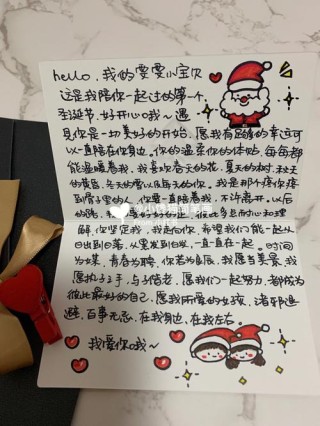 hello, 我的雯雯小宝贝
这是我陪你一起过的第一个
圣诞节, 好开心哦~ 遇
见你是一切美好的开始, 愿我有足够的幸运可
以一直陪在你身边。你的温柔你的体贴, 每每都
能温暖着我, 我喜欢春天的花, 夏天的树, 秋天
的黄昏, 冬天的雪以及每天的你。我是那个疼你疼
到骨子里的人, 你要一直陪着我, 不许离开, 以后
的路, 彼此多包容耐心和理
解, 你坚定我, 我走向你, 希望我们能一起从
日出到日落, 从黑发到白发, 一直在一起。时间
为媒, 青春为聘, 你若为皇辰, 我愿为
愿执子之手, 与子偕老, 愿我们一起努力, 都成为
彼此最好的自己, 愿我所爱的女孩, 诸邪退
避, 百事无忌, 在我身边, 在我左右
我爱你哦~